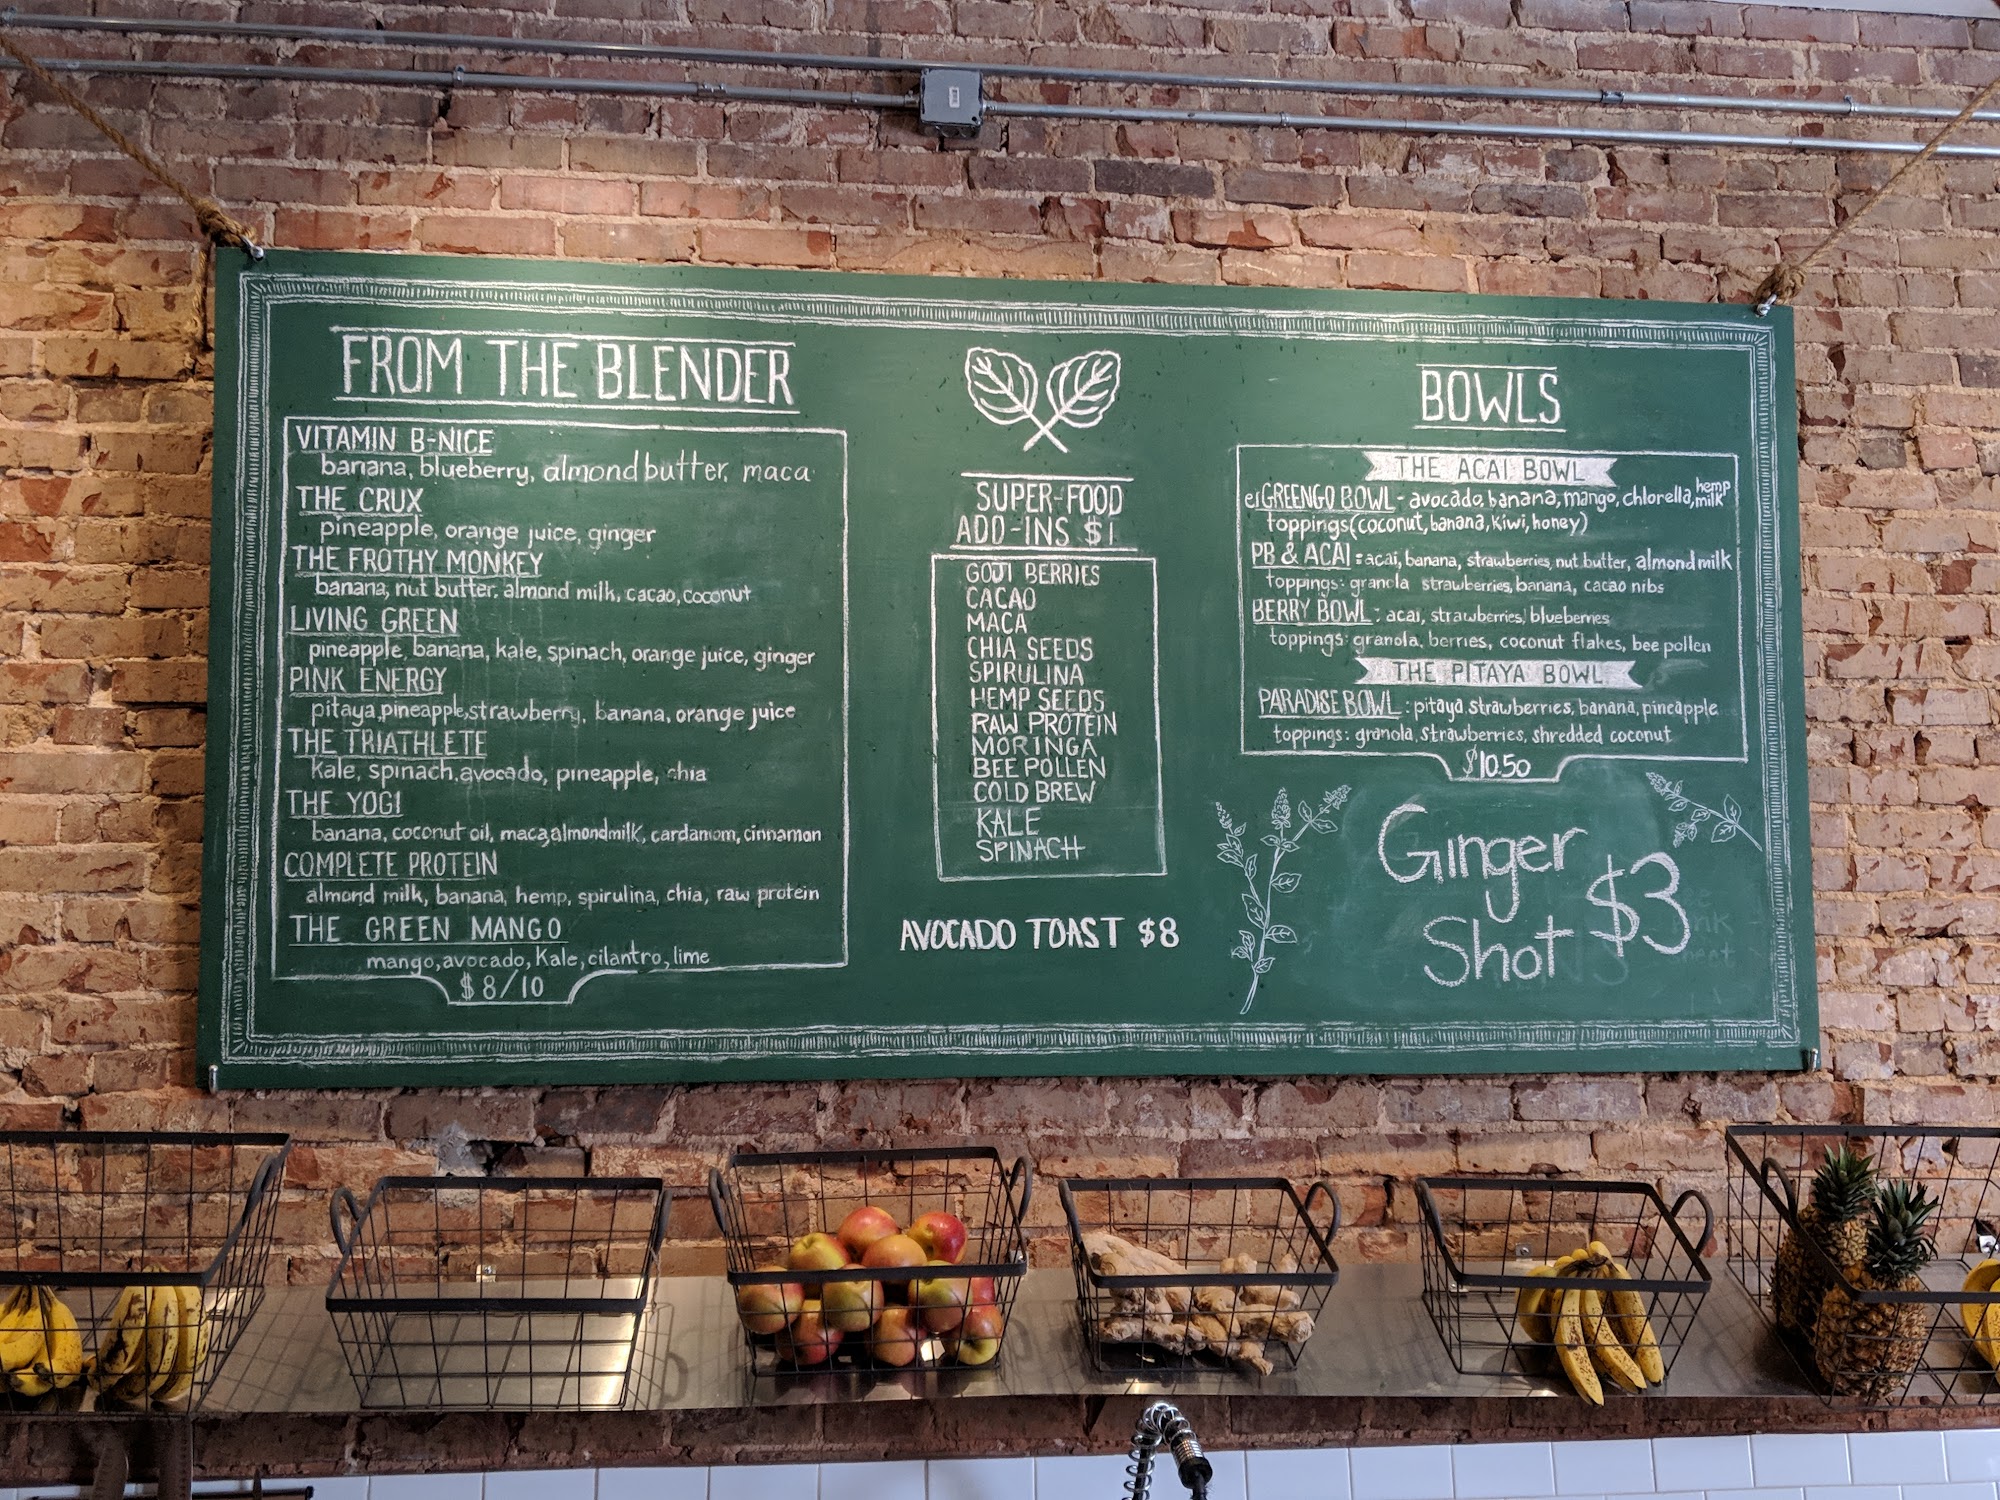 FROM THE BLENDER
VITAMIN B-NICE
banana, blueberry, almond butter, maca
THE CRUX
pineapple, orange juice, ginger
THE FROTHY MONKEY
banana, nut butter, almond milk, cacao, coconut
LIVING GREEN
pineapple, banana, kale, spinach, orange juice, ginger
PINK ENERGY
pitaya, pineapple, strawberry, banana, orange juice
THE TRIATHLETE
kale, spinach, avocado, pineapple, chia
THE YOGI
banana, coconut oil, maca, almond milk, cardamom, cinnamon
COMPLETE PROTEIN
almond milk, banana, hemp, spirulina, chia, raw protein
THE GREEN MANGO
mango, avocado, Kale, cilantro, lime
$8/10
SUPER-FOOD
ADD-INS $1
GOJI BERRIES
CACAO
MACA
CHIA SEEDS
SPIRULINA
HEMP SEEDS
RAW PROTEIN
MORINGA
BEE POLLEN
COLD BREW
KALE
SPINACH
AVOCADO TOAST $8
BOWLS
THE ACAI BOWL
el GREENGO BOWL - avocado, banana, mango, chlorella, hemp milk
toppings (coconut, banana, kiwi, honey)
PB & ACAI : acai, banana, strawberries, nut butter, almond milk
toppings: granola strawberries, banana, cacao nibs
BERRY BOWL : acai, strawberries, blueberries
toppings: granola, berries, coconut flakes, bee pollen
THE PITAYA BOWL
PARADISE BOWL : pitaya, strawberries, banana, pineapple
toppings: granola, strawberries, shredded coconut
$10.50
Ginger
Shot $3